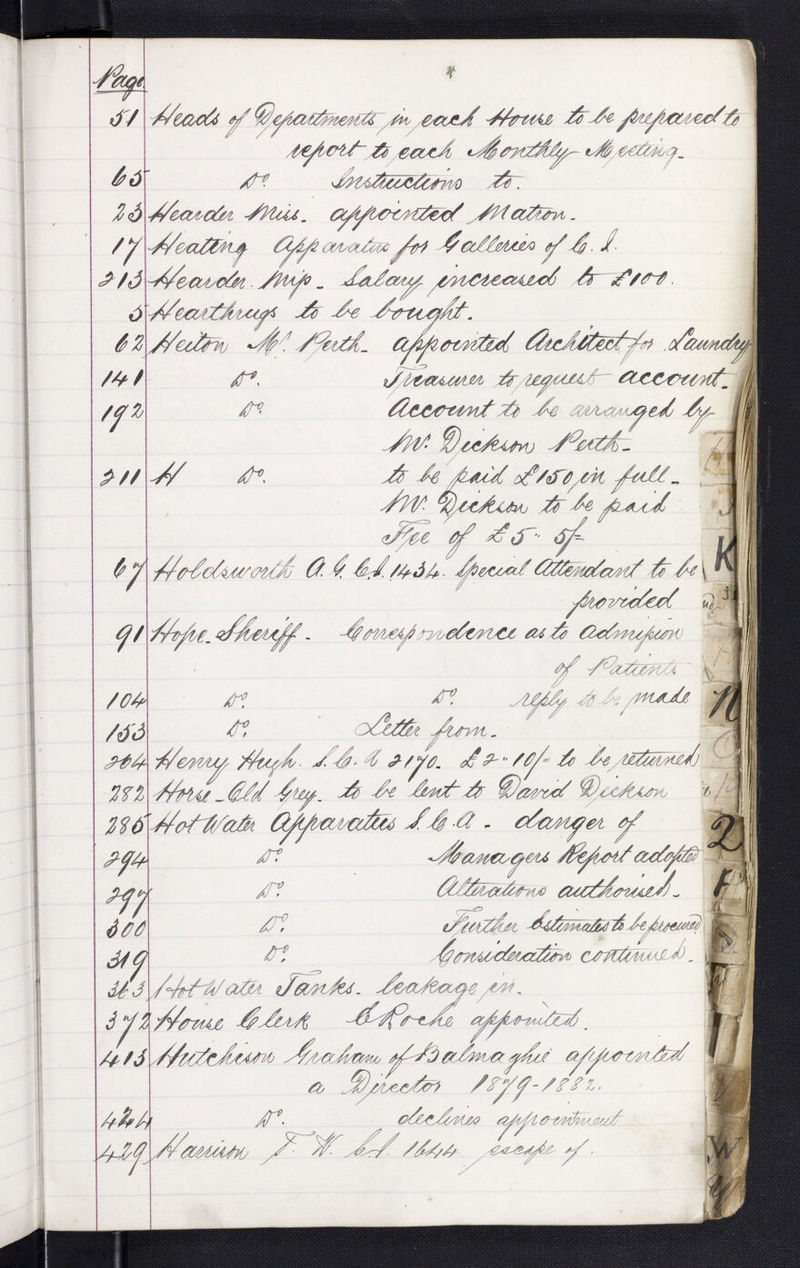 Page
51 Heads of Departments in each House to be prepared to
report to each Monthly Meeting.
65 Do. Instructions to.
23 Hearder Miss. appointed Matron.
17 Heating Apparatus for Galleries of C. I.
213 Hearder. Miss. Salary increased to £100.
5 Hearthrugs to be bought.
62 Heiton Mr. Perth. appointed Architect for Laundry
141 Do. Treasurer to request account.
192 Do. Account to be arranged by
Mr. Dickson Perth.
211 H Do. to be paid £150 in full.
Mr. Dickson to be paid
Fee of £5" 5/=
67 Holdsworth A. G. C.I. 1434. Special Attendant to be
provided
91 Hope. Sheriff. Correspondence as to admission
of Patients
104 Do. Do. reply to be made
153 Do. Letter from.
264 Henry Hugh. S. C. A 2170. £2" 10/= to be returned
282 Horse. Old Grey. to be lent to David Dickson
285 Hot Water Apparatus S. C. A. danger of
294 Do. Managers Report adopted
297 Do. Alterations authorised.
300 Do. Further Estimates to be procured
319 Do. Consideration continued.
363 Hot Water Tanks. leakage in.
372 House Clerk C Roche appointed.
413 Hutchison Graham of Balmaghie appointed
a Director 1879-1882.
424 Do. declines appointment
429 Harrison T. W. C.I. 1644 escape of.
K
N
W